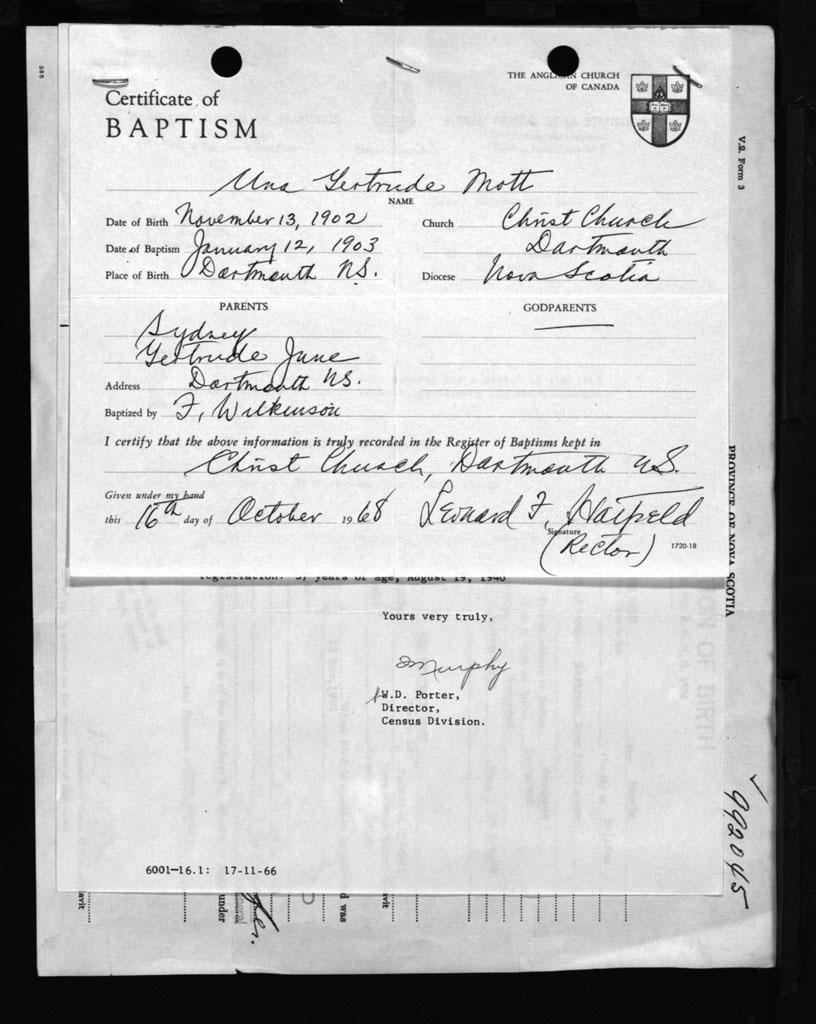 Certificate of
BAPTISM
THE ANGLICAN CHURCH
OF CANADA
Una Gertrude Mott
NAME
Date of Birth November 13, 1902
Church Christ Church
Date of Baptism January 12, 1903
Dartmouth
Place of Birth Dartmouth N.S.
Diocese Nova Scotia
PARENTS
GODPARENTS
Sydney
Gertrude June
Address Dartmouth N.S.
Baptized by F. Wilkinson
I certify that the above information is truly recorded in the Register of Baptisms kept in
Christ Church, Dartmouth N.S.
Given under my hand
this 16th day of October 1968 Leonard F. Hatfield
Signature
(Rector)
1720-18
registration: 37 years of age, August 19, 1940
Yours very truly,
Murphy
W.D. Porter,
Director,
Census Division.
6001-16.1: 17-11-66
V.S. Form 3
PROVINCE OF NOVA SCOTIA
ON OF BIRTH
992045
avit
under
d was
avit